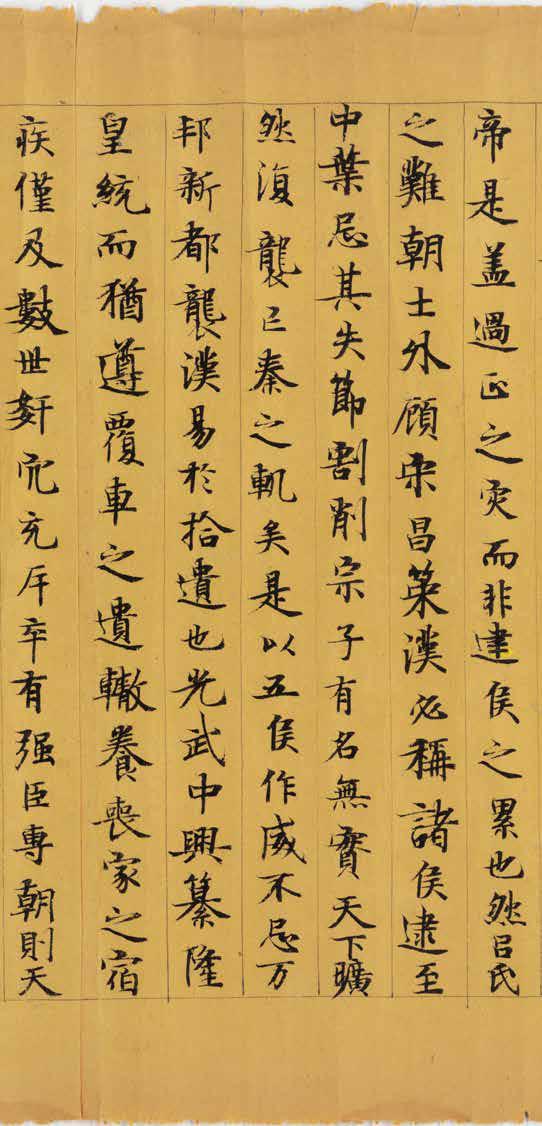 帝是盖過正之灾而非建侯之累也然吕氏
之難朝士外顧宋昌策漢必稱諸侯逮至
中葉忌其失節割削宗子有名無實天下曠
然復襲亡秦之軌矣是以五侯作威不忌万
邦新都襲漢易於拾遺也光武中興纂隆
皇統而猶遵覆車之遺轍養喪家之宿
疾僅及數世姧宄充斥卒有强臣專朝則天